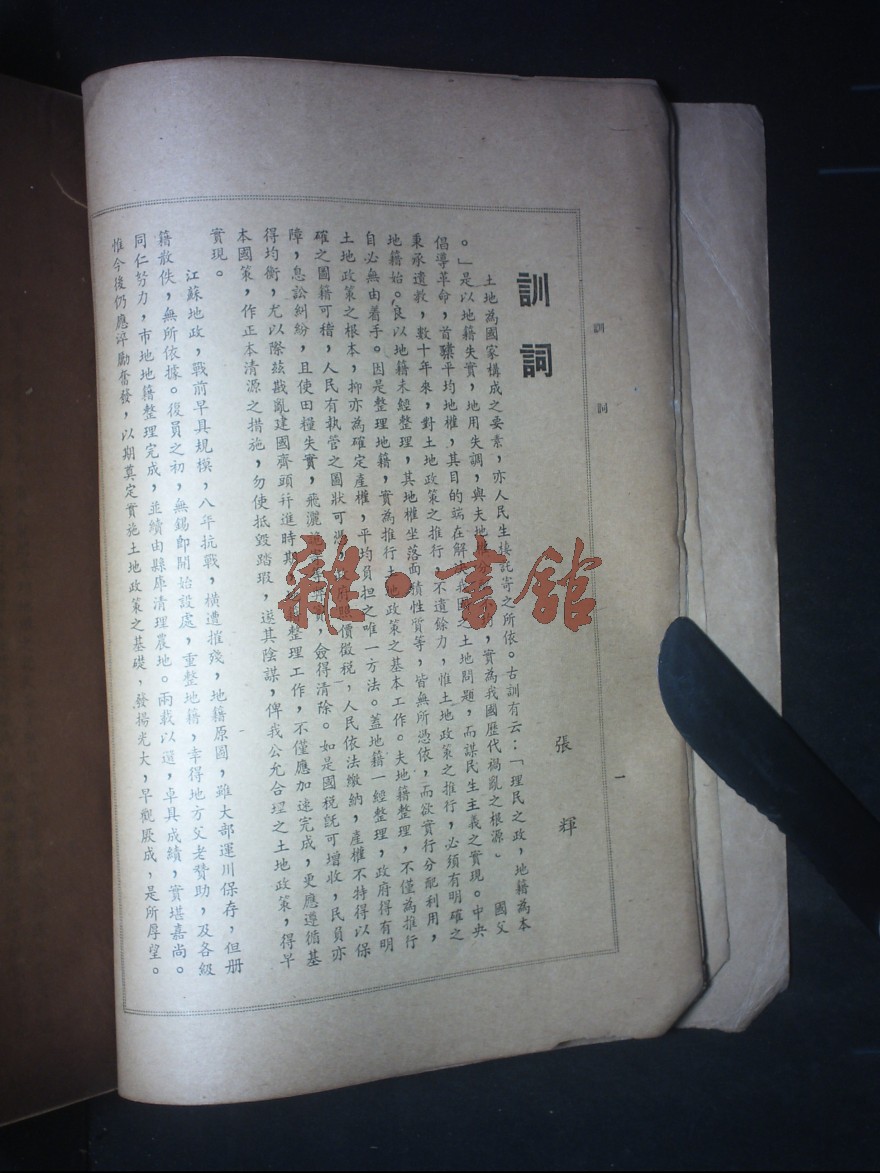 訓 詞
一
訓詞
張 輝
土地為國家構成之要素,亦人民生棲託寄之所依。古訓有云:「理民之政,地籍為本
。」是以地籍失實,地用失調,與夫地權分,實為我國歷代禍亂之根源。 國父
倡導革命,首平均地權,其目的端在解決我國之土地問題,而謀民生主義之實現。中央
秉承遺教,數十年來,對土地政策之推行,不遺餘力,惟土地政策之推行,必須有明確之
地籍始。良以地籍未經整理,其地權坐落面積性質等,皆無所憑依,而欲實行分配利用,
自必無由着手。因是整理地籍,實為推行土地政策之基本工作。夫地籍整理,不僅為推行
土地政策之根本,抑亦為確定產權,平均負担之唯一方法。蓋地籍一經整理,政府得有明
確之圖籍可稽,人民有執管之圖狀可憑,府價徵稅,人民依法繳納,產權不特得以保
障,息訟糾紛,且使田糧失實,飛灑,僉得清除。如是國稅既可增收,民負亦
得均衡,尤以際茲戡亂建國齊頭幷進時期,整理工作,不僅應加速完成,更應遵循基
本國策,作正本清源之措施,勿使抵毀踏瑕,遂其陰謀,俾我公允合理之土地政策,得早
實現。
江蘇地政,戰前早具規模,八年抗戰,橫遭摧殘,地籍原圖,雖大部運川保存,但册
籍散佚,無所依據。復員之初,無錫即開始設處,重整地籍,幸得地方父老贊助,及各級
同仁努力,市地地籍整理完成,並續由縣賡清理農地。兩載以還,卓具成績,實堪嘉尚。
惟今後仍應淬勵奮發,以期奠定實施土地政策之基礎,發揚光大,早觀厥成,是所厚望。
雜·書館